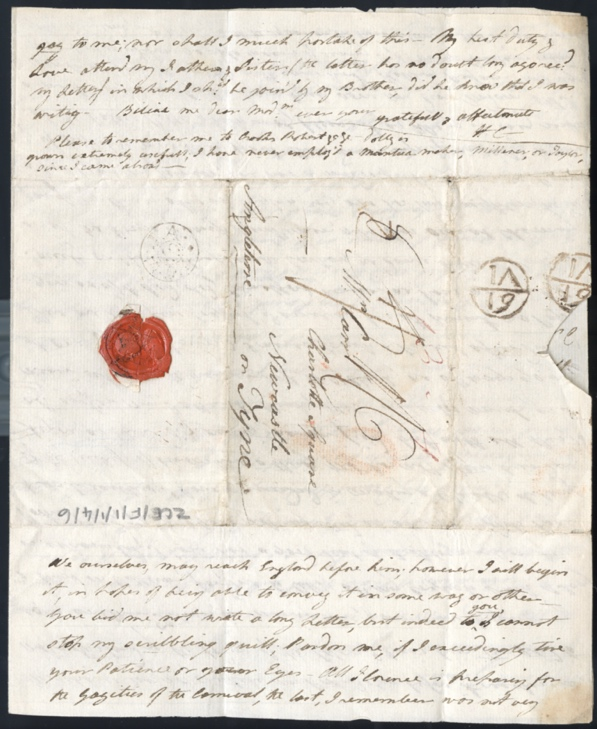 gay to me; nor shall I much partake of this — My best Duty &
Love attend my Father & Sisters / the latter has no doubt long ago rec.d
my letter / in which I sh.d be join'd by my Brother, did he know that I was
writing. Believe me dear Mad.m ever your gratefull & affectionate
H C
Please to remember me to Cooks Robert &c &c
grown extremely usefull, I have never employ'd a mantua maker, Milliner, or
since I came abroad —
A
Angleterre
Mrs Carr
Charlotte Square
Newcastle
on Tyne
IV
19
IV
19
ZCE/F/1/1/4/6
We ourselves, may reach England before him; however I will begin
it, in hopes of being able to convey it in some way or other —
You bid me not write a long Letter, but indeed to you I cannot
stop my scribbling quill, Pardon me, if I exceedingly tire
your Patience or your Eyes — All Florence is preparing for
the Gayeties of the Carnival, the last, I remember was not very